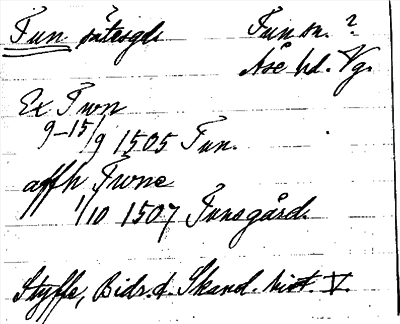 Fun sätesgd. Fun sn. ?
Åse hd. Vg.
Ex Fwn
9–15/9 1505 Fun.
aff h Fwne
1/10 1507 Funsgård.
Styffe, Bidr. t. Skand. hist. V.